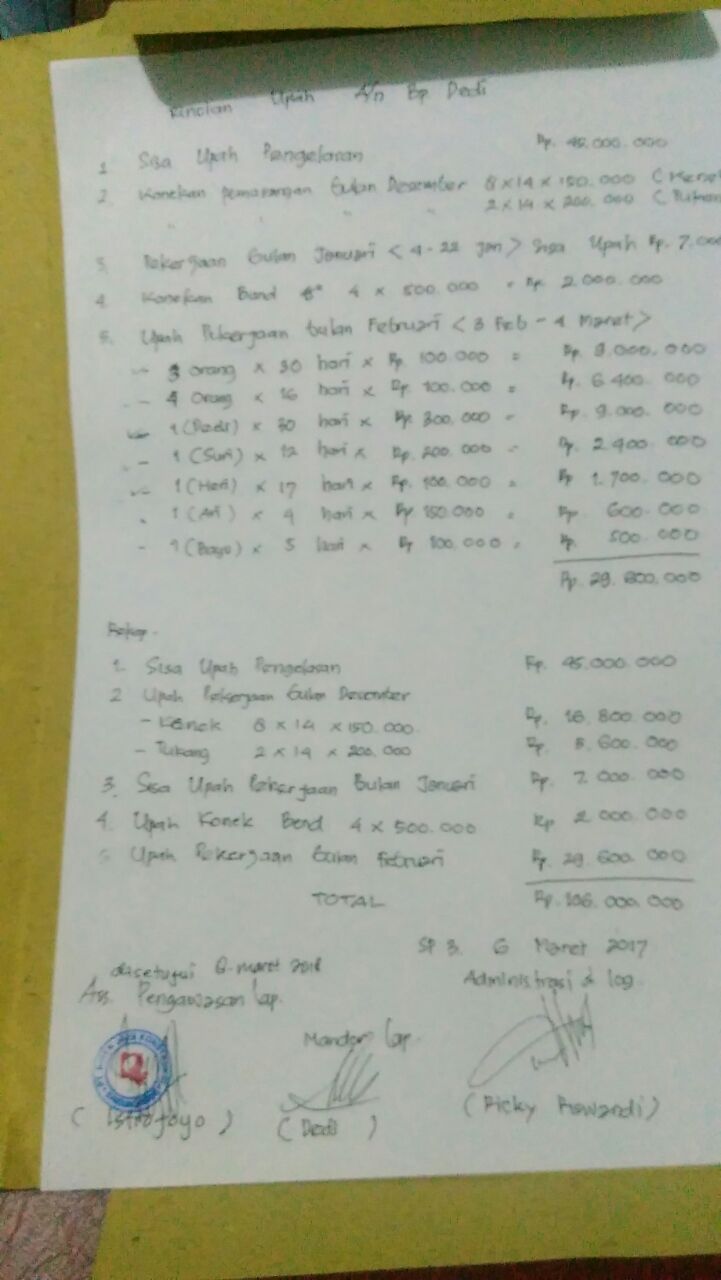 Rincian Upah A/n Bp Dedi
1. Sisa Upah Pengelasan Rp. 45.000.000
2. Konekan pemasangan bulan Desember 8 x 14 x 150.000 (Kenek
" " " 2 x 14 x 200.000 (Tukan
3. Pekerjaan bulan Januari < 4 - 22 Jan > Sisa Upah Rp. 7.000
4. Konekan Bend 8" 4 x 500.000 = Rp. 2.000.000
5. Upah Pekerjaan bulan Februari < 3 Feb - 4 Maret >
- 3 orang x 30 hari x Rp. 100.000 = Rp. 9.000.000
- 4 orang x 16 hari x Rp. 100.000 = Rp. 6.400.000
- 1 (Dedi) x 30 hari x Rp. 300.000 = Rp. 9.000.000
- 1 (Suri) x 12 hari x Rp. 200.000 = Rp. 2.400.000
- 1 (Heri) x 17 hari x Rp. 100.000 = Rp 1.700.000
- 1 (Ari) x 4 hari x Rp 150.000 = Rp. 600.000
- 1 (Bayu) x 5 hari x Rp 100.000 = Rp. 500.000
Rp. 29.600.000
Rekap.
1. Sisa Upah Pengelasan Rp. 45.000.000
2 Upah Pekerjaan bulan Desember
- Kenek 8 x 14 x 150.000. Rp. 16.800.000
- Tukang 2 x 14 x 200.000 Rp. 5.600.000
3. Sisa Upah Pekerjaan Bulan Januari Rp. 7.000.000
4. Upah Konek Bend 4 x 500.000 Rp 2.000.000
5 Upah Pekerjaan bulan Februari Rp. 29.600.000
TOTAL Rp. 106.000.000
SP 3. 6 Maret 2017
disetujui 8-maret 2018
Administrasi & log.
Ass. Pengawasan lap.
Mandor lap.
( Dedi )
(Ricky Rowandi)